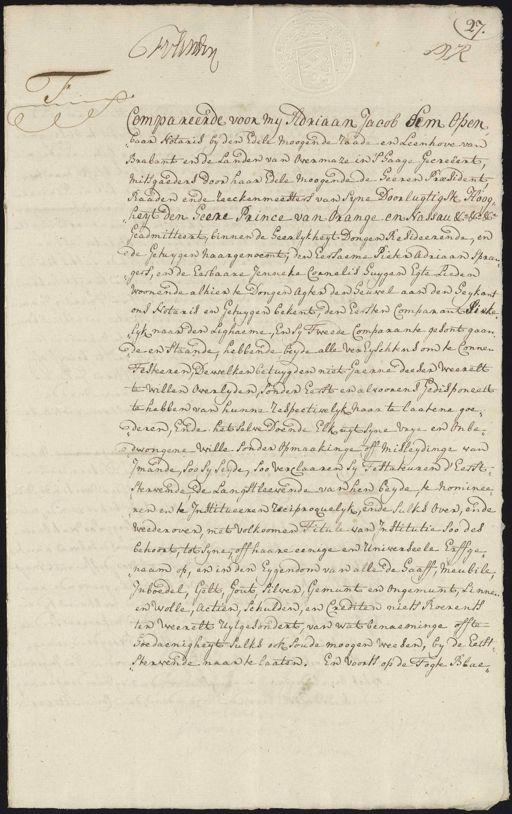 27.
Compareerde voor my Adriaan Jacob Sem Open,
baar Notaris by den Edele Moogende Raade en Leenhove van
Brabant en de Landen van Overmaze in S'Hage Gecreëert,
mitsgaeders door haar Edele Moogende de Heeren Præsident,
Raaden ende Reeckenmeesters van Syne Doorlugtigste Hoog-
heyt den Heere Prince van Orange en Nassau &c &c &c
Geadmitteert, binnen de Heerlykheyt Dongen Resideerende, en
de Getuygen Naargenoemt, den Eersaeme Pieter Adriaan
en de Eerbaare Cornelis Huygen Egte Lieden
woonende alhier te Dongen Agter den Heuvel aan den Heykant
ons Notaris en Getuygen bekent, den Eersten Comparant Sieke
lyk naar den Lighaeme, En Sy Tweede Comparante gesont gaan
de en Staande, hebbende beyde alle Vereyschten om te Connen
Testeeren, Dewelke betuygden niet gaerne deeser Weerelt
te willen Overlyden, Sonder Eerst en alvoorens Gedisponeert
te hebben van hunne Respectivelyk Naar te laatene goe-
deren, Ende het selve Doende Elk uyt Syne Vrye en Onbe-
dwongene Wille Sonder Opmaakinge, off Misleydinge van
Imande, Soo Sy Seyde, Soo Verclaaren Sy Testateuren d'Eerst-
Stervende, De Langstleevende van hen beyde, te Nominee-
ren en te Institueeren Reciproquelyk, ende Sulks Over, ende
Wederover, met Volkoomen Titule van Institutie Soo des
behoort, tot Syne, off haare eenige en Universeele Erffge-
naam op, en in den Eygendom van alle de Haeff, Meubile,
Inboedel, Gelt, Gout, Silver, Gemunt en Ongemunt, Linne
en Wolle, Actien, Schulden, en Crediten niets Roerents
ter Weerelt Uytgesondert, van wat benaeminge offte
Hoedaenigheyt Sulks ook Soude moogen Weesen, by de Eerst-
Stervende naar te laaten. En Voorts op de Togte